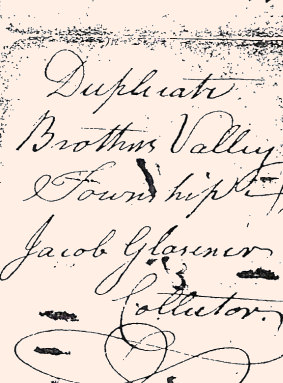 Duplicate
Brothers Valley
Township
Jacob Glasener
Collector.